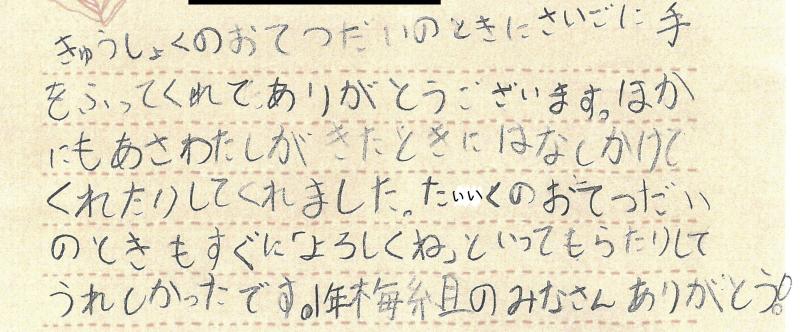 きゅうしょくのおてつだいのときにさいごに手
をふってくれてありがとうございます。ほか
にもあさわたしがきたときにはなしかけて
くれたりしてくれました。たいいくのおてつだい
のときもすぐに「よろしくね」といってもらたりして
うれしかったです。1年梅組のみなさんありがとう!